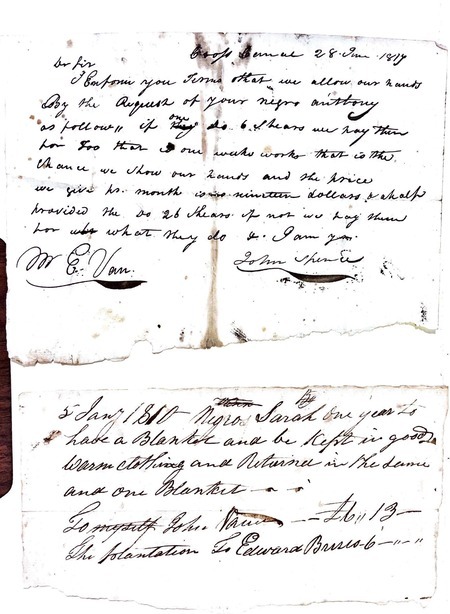 28 June 1817
Dr Sir
I Enform you Terms that we allow our hands
By the Request of your negro anthony
as follow,, if one they do 6 Shears we pay them
for Too that is one weeks works that is the
Chance we Show our hands and the price
we give pr. month is nineteen dollars & a half
provided the do 26 Shears if not we pay them
for what they do &. I am yr
Mr E. Van
John Spence
5 Jany 1810 Negro Sarah one year to
have a Blanket and be Kept in good
warm clothing and Returned in the Same
and one Blanket
To myself John £6,,13
The plantation To Edward